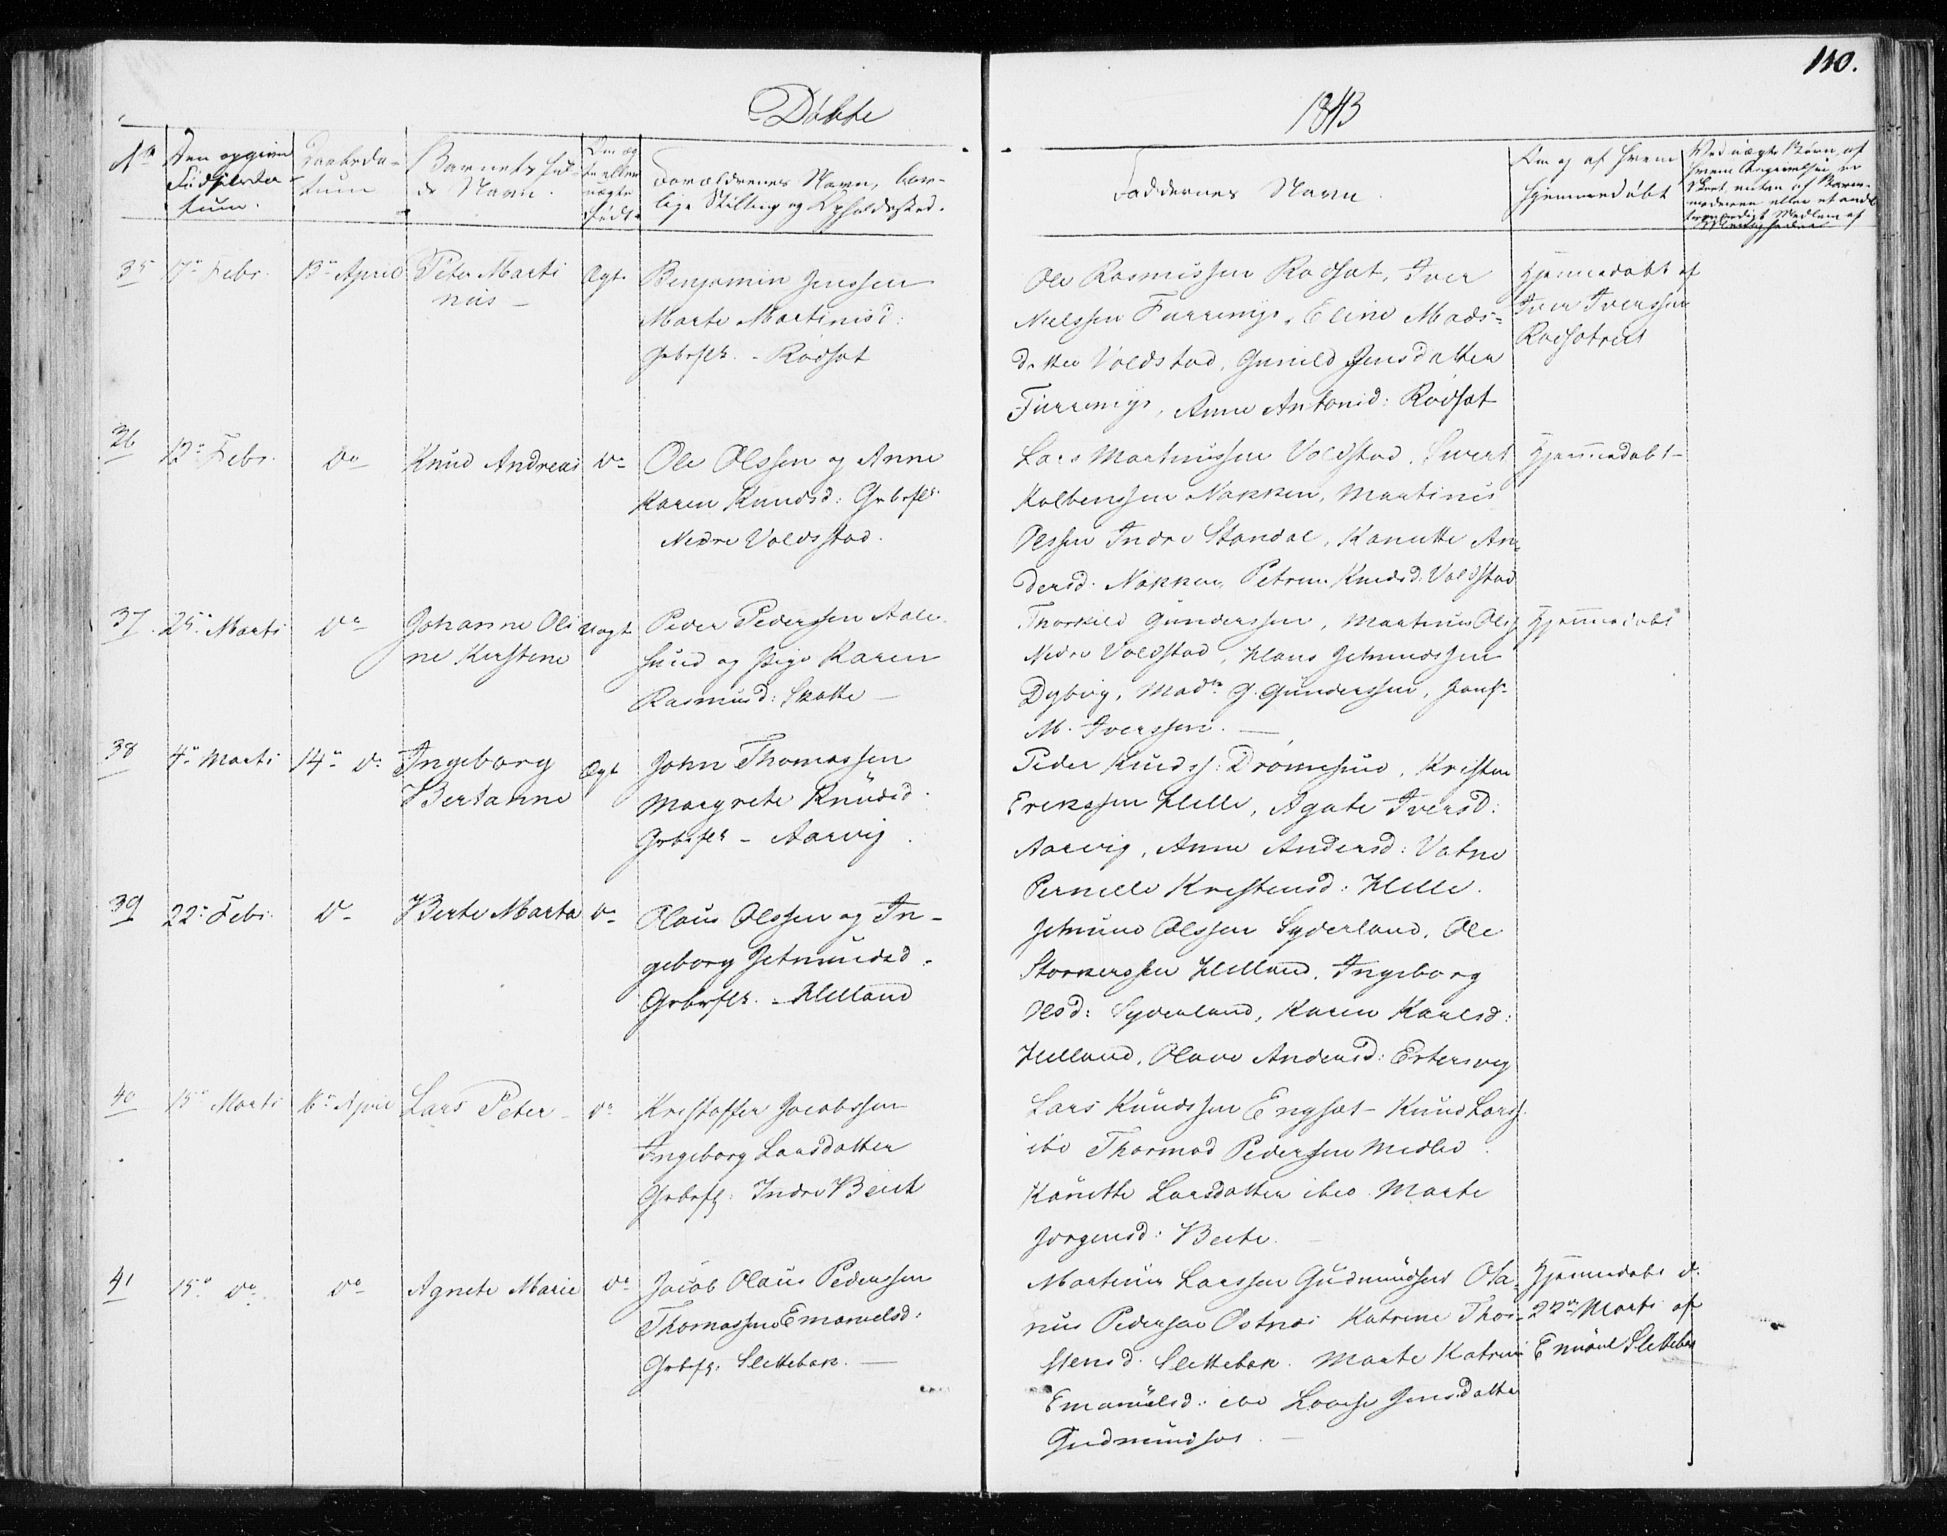 110.
Døbte
1843
No
Den opgivne
Fødselsda-
tum.
Daabsda-
tum
Barnets ful-
de Navn.
Om æg-
te eller
uægte
født.
Forældrenes Navn, bor-
lige Stilling og Opholdssted.
Faddernes Navn.
Om og af hvem
hjemmedøbt
Ved uægte Børn, af
hvem Angivelsen er
skeet, enten af Barne-
moderen eller et andet
troværdigt Medlem af
Menigheden
35 17de Febr. 13de April Peter Marti
nus –
Ægt.
Benjamin Jenssen
Marte Martinisd:
Gbrflk. – Rødsæt
Ole Rasmussen Rødsæt, Iver
Nielssen Furremyr, Eline Mads-
datter Voldstad, Gunild Jensdatter
Furremyr, Anne Antonid: Rødsæt
Hjemmedøbt af
Iver Iverssen
Rødsætreit
36 12te Febr. do Knud Andreas do
Ole Olssen og Anne
Karen Knudsd: Gbrflk.
Nedre Voldsstad.
Lars Martinussen Voldstad, Sivert
Kolbenssen Nakken, Martinus
Olssen Indre Standal, Kanutte An-
dersd. Nakken, Petrine Knudsd. Voldstad
Hjemmedøbt –
37. 25de Marti do Johanne Oli
ne Kirstine
Uægt.
Peder Pederssen Aale
sund og Pige Karen
Rasmusd: Skotte –
Thorkild Gunderssen, Martinus Ols
Nedre Voldstad, Klaus Jetmundssen
Dybvig, Mad. G. Gunderssen, Jomf.
M. Iverssen. –
Hjemmedøbt
38 4de Marti 14de do Ingeborg
Bertanne
Ægt.
John Thomassen
Margrete Knudsd.
Gbrflk – Aarvig.
Peder Knudss: Dromesund, Kristen
Erikssen Helle, Agate Iversd:
Aarvig, Anne Andersd: Vatne
Pernelle Kristensd: Helle.
39 22de Febr. do Berte Marta do
Olaus Olssen og In-
geborg Jetmundsd.
Gbrflk. – Helland
Jetmund Olssen Syderland, Ole
Storkerssen Helland, Ingeborg
Olsd: Syderland, Karen Karlsd:
Helland, Olave Andersd: Estensvig
40 15de Marti 16de April Lars Peter – do
Kristoffer Jacobssen
Ingeborg Larsdatter
Gbrfl: Indre Beite
Lars Knudssen Engsæt – Knud Larss.
ibid Thormod Pederssen Medbø.
Kanutte Larsdatter ibid Marte
Jørgensd: Beite.
41 15de do do Agnete Marie do
Jacob Olaus Pederssen
Thomassine Emanuelsd:
Gbrfl. Slettebak. –
Martinus Larssen Gudmundsæt Ola-
nus Pedersen Ostnæs Katrine Thor-
stensd. Slettebak. Marte Katrine
Emanuelsd: ibid Lovise Jensdatter
Gudmundsæt. –
Hjemmedøbt d.
22de Marti af
Emanuel Slettebak